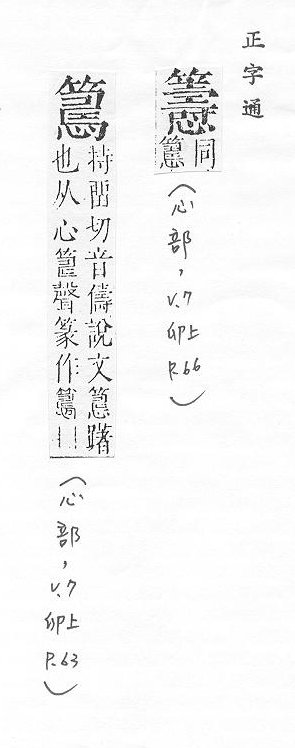 正字通
同
(心部,v.7 卯上 P.66)
持畱切音儔說文躇
也从心聲篆作
(心部,v.7 卯上 P.63)